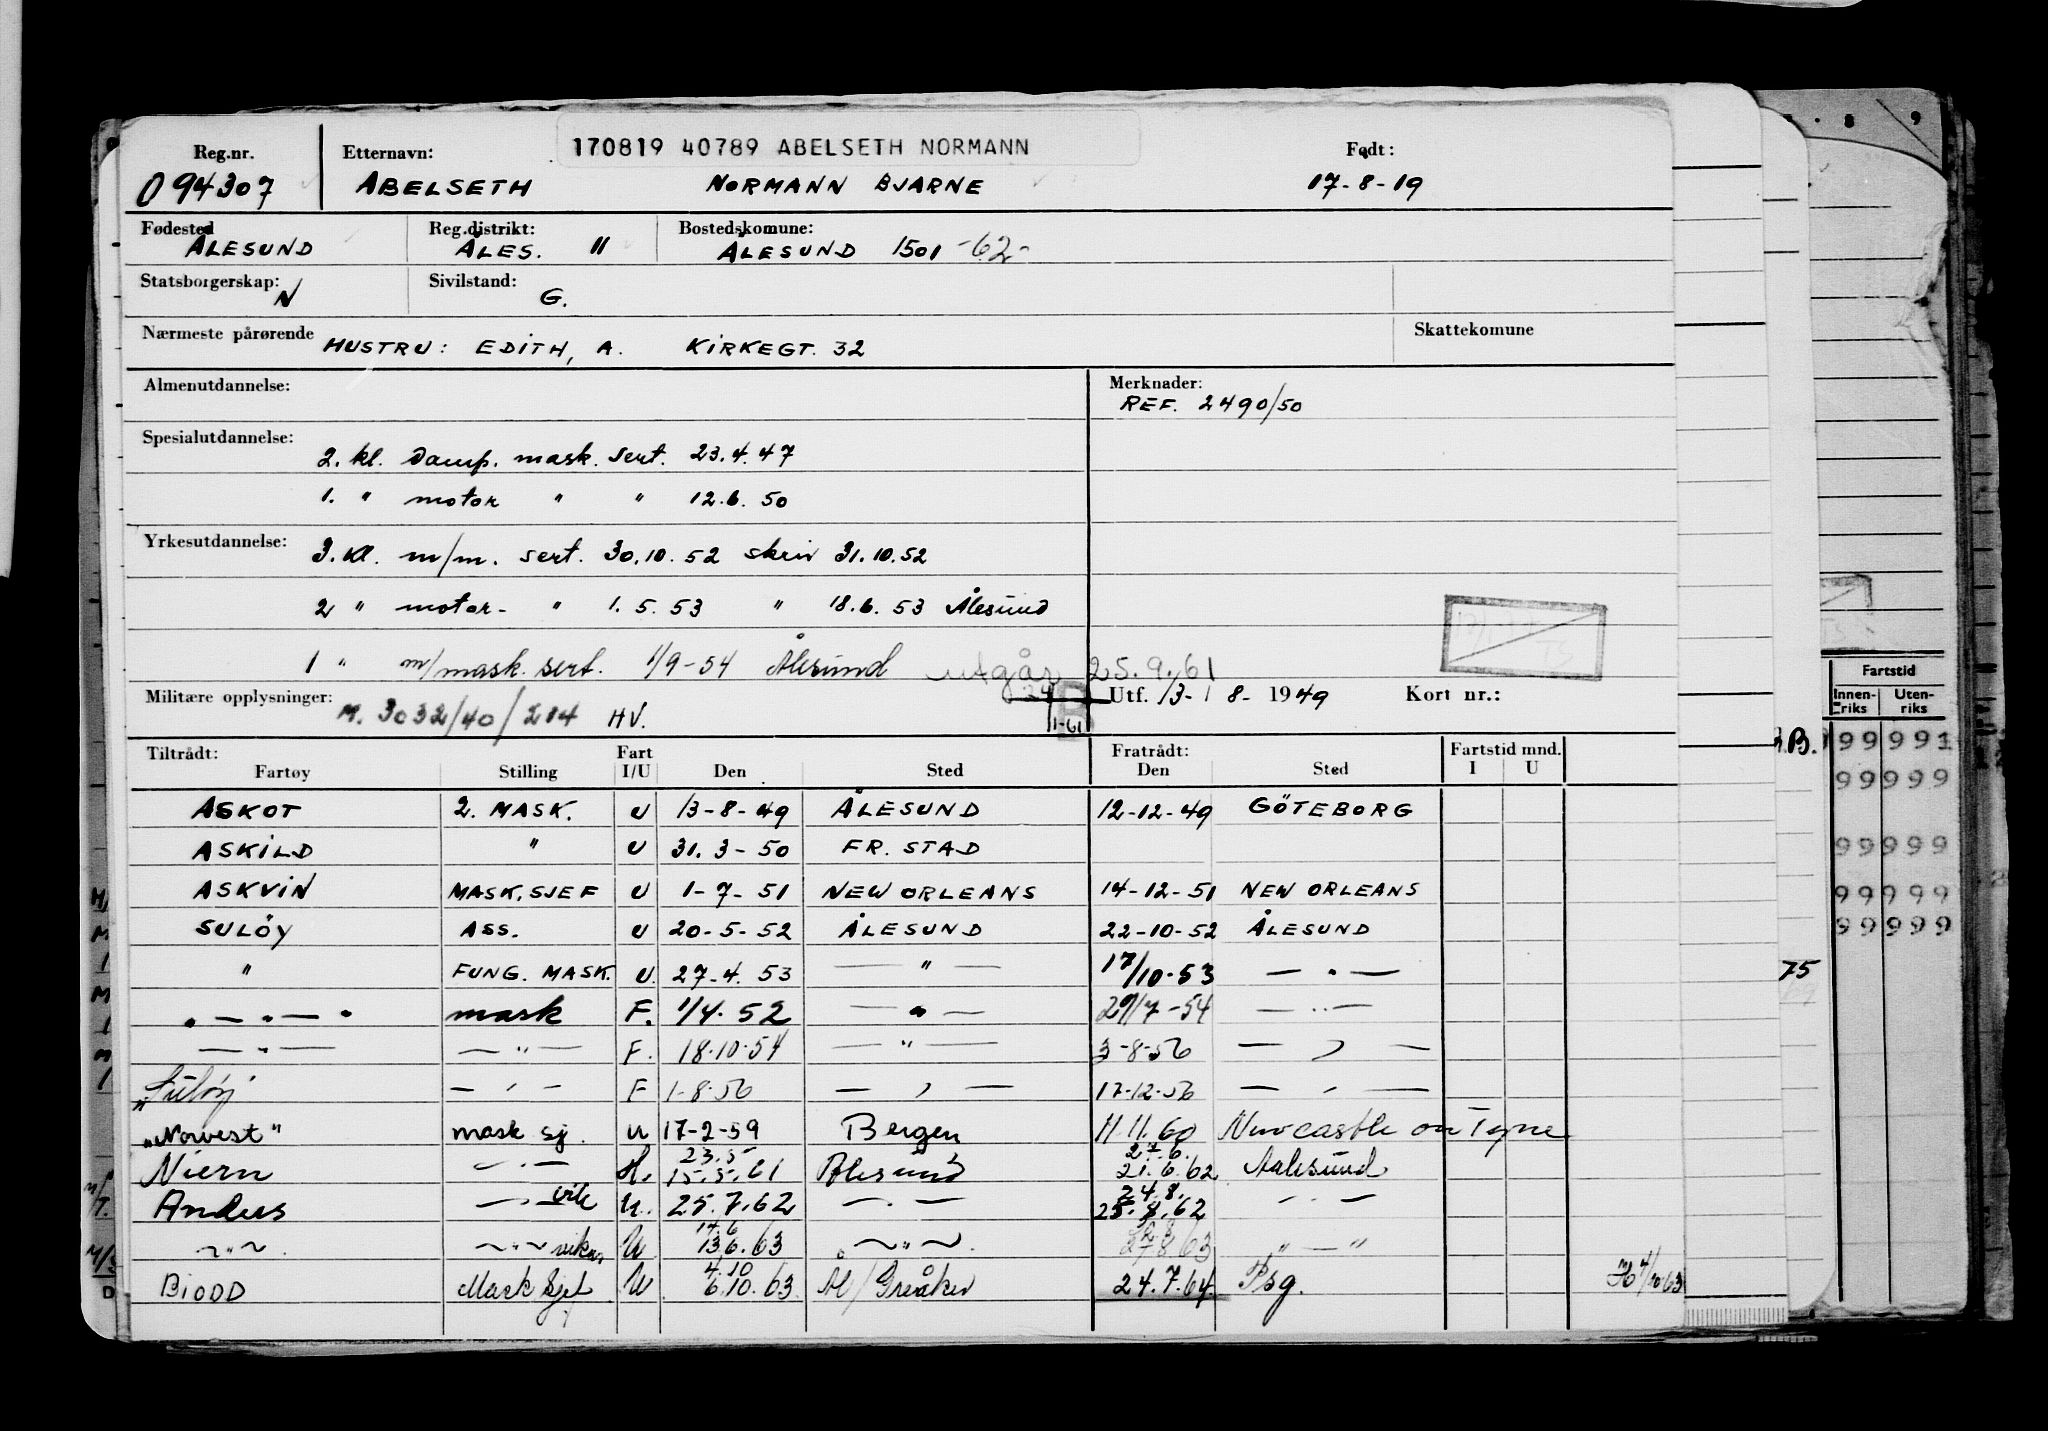 170819 40789 ABELSETH NORMANN
Reg.nr. Etternavn: Født:
094307 ABELSETH NORMANN BJARNE 17-8-19
Fødested Reg.distrikt: Bostedskomune:
ÅLESUND ÅLES. 11 ÅLESUND 1501 -62-
Statsborgerskap: N Sivilstand: G.
Nærmeste pårørende HUSTRU: EDITH, A. KIRKEGT. 32 Skattekomune
Almenutdannelse: Merknader:
REF. 2490/50
Spesialutdannelse:
2. kl. damp. mask. sert. 23.4.47
1. " motor " " 12.6.50
Yrkesutdannelse: 3. kl. m/m. sert. 30.10.52 skriv 31.10.52
2 " motor- " 1.5.53 " 18.6.53 Ålesund
1 " m/mask. sert. 1/9-54 Ålesund utgår 25.9.61
Militære opplysninger: M. 3032/40/214 HV. 1-61 Utf. 13-8-1949 Kort nr.:
Tiltrådt: Fart Fratrådt: Fartstid mnd.
Fartøy Stilling I/U Den Sted Den Sted I U
ASKOT 2. MASK. U 13-8-49 ÅLESUND 12-12-49 GÖTEBORG
ASKILD " U 31.3-50 FR. STAD
ASKVIN MASK.SJEF U 1-7-51 NEW ORLEANS 14-12-51 NEW ORLEANS
SULÖY ASS. U 20-5-52 ÅLESUND 22-10-52 ÅLESUND
" FUNG. MASK. U. 27-4.53 — " — 17/10-53 — " —
" — " — " mask F. 1/4-52 — " — 29/7-54 — " —
— " — — " — F. 18-10-54 — " — 3-8-56 — " —
"Suløy — " — F 1-8-56 — " — 17-12-56 — " —
"Norvest" mask sj. U 17-2-59 Bergen 11.11.60 Newcastle on Tyne
Niern — " — 23.5 15.5.61 Ålesund 21.6.62 Aalesund
Anders — " — U. 25.7.62 — " — 24.8. 25.8.62 — " —
— " — — " — vikar U 13.6.63 — " — " — "
BIODD Mask sjef U 4.10 6.10.63 Ål/Greåker 24.7.64 Psg.
Fartstid
Innenriks Utenriks
99 991
99 999
99 999
99 999
99 999
75